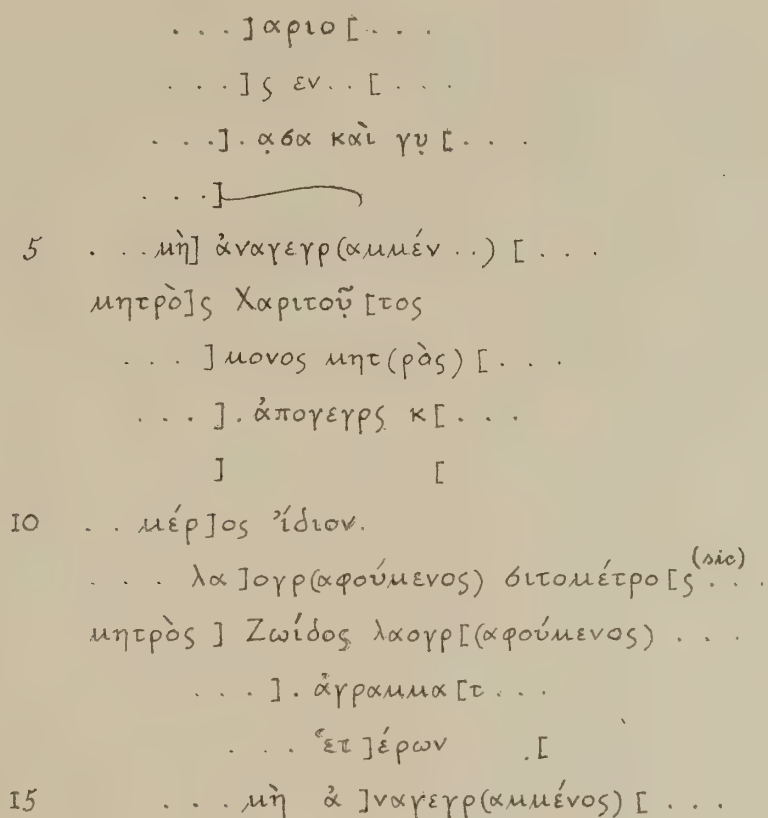 . . . ] αριο [ . . .
. . . ] ς εν . . [ . . .
. . . ] . α̣σα καὶ γυ̣ [ . . .
. . . ]
5 . . . μὴ] ἀναγεγρ(αμμέν . .) [ . . .
μητρὸ]ς Χαριτοῦ̣ [τος
. . . ] μονος μητ(ρὰς) [ . . .
. . . ] . ἀπογεγρς κ [ . . .
] [
10 . . μέρ]ος ἴδιον.
. . . λα ]ογρ(αφούμενος) σιτομέτρο[ς (sic) . . .
μητρὸς ] Ζωίδος λαογρ[(αφούμενος) . . .
. . . ] . ἀγραμμα [τ . . .
. . . ἑτ ]έρων . [
15 . . . μὴ ἀ ]ναγεγρ(αμμένος) [ . . .